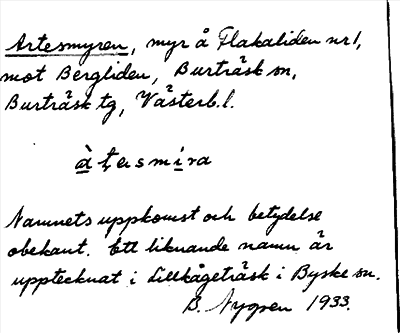 Artesmyren, myr å Flakaliden nr 1,
mot Bergliden, Burträsk sn,
Burträsk tg, Västerb. l.
à̲ṭasmi̲ra
Namnets uppkomst och betydelse
obekant. Ett liknande namn är
upptecknat i Lillkågeträsk i Byske sn.
B. Nygren 1933.